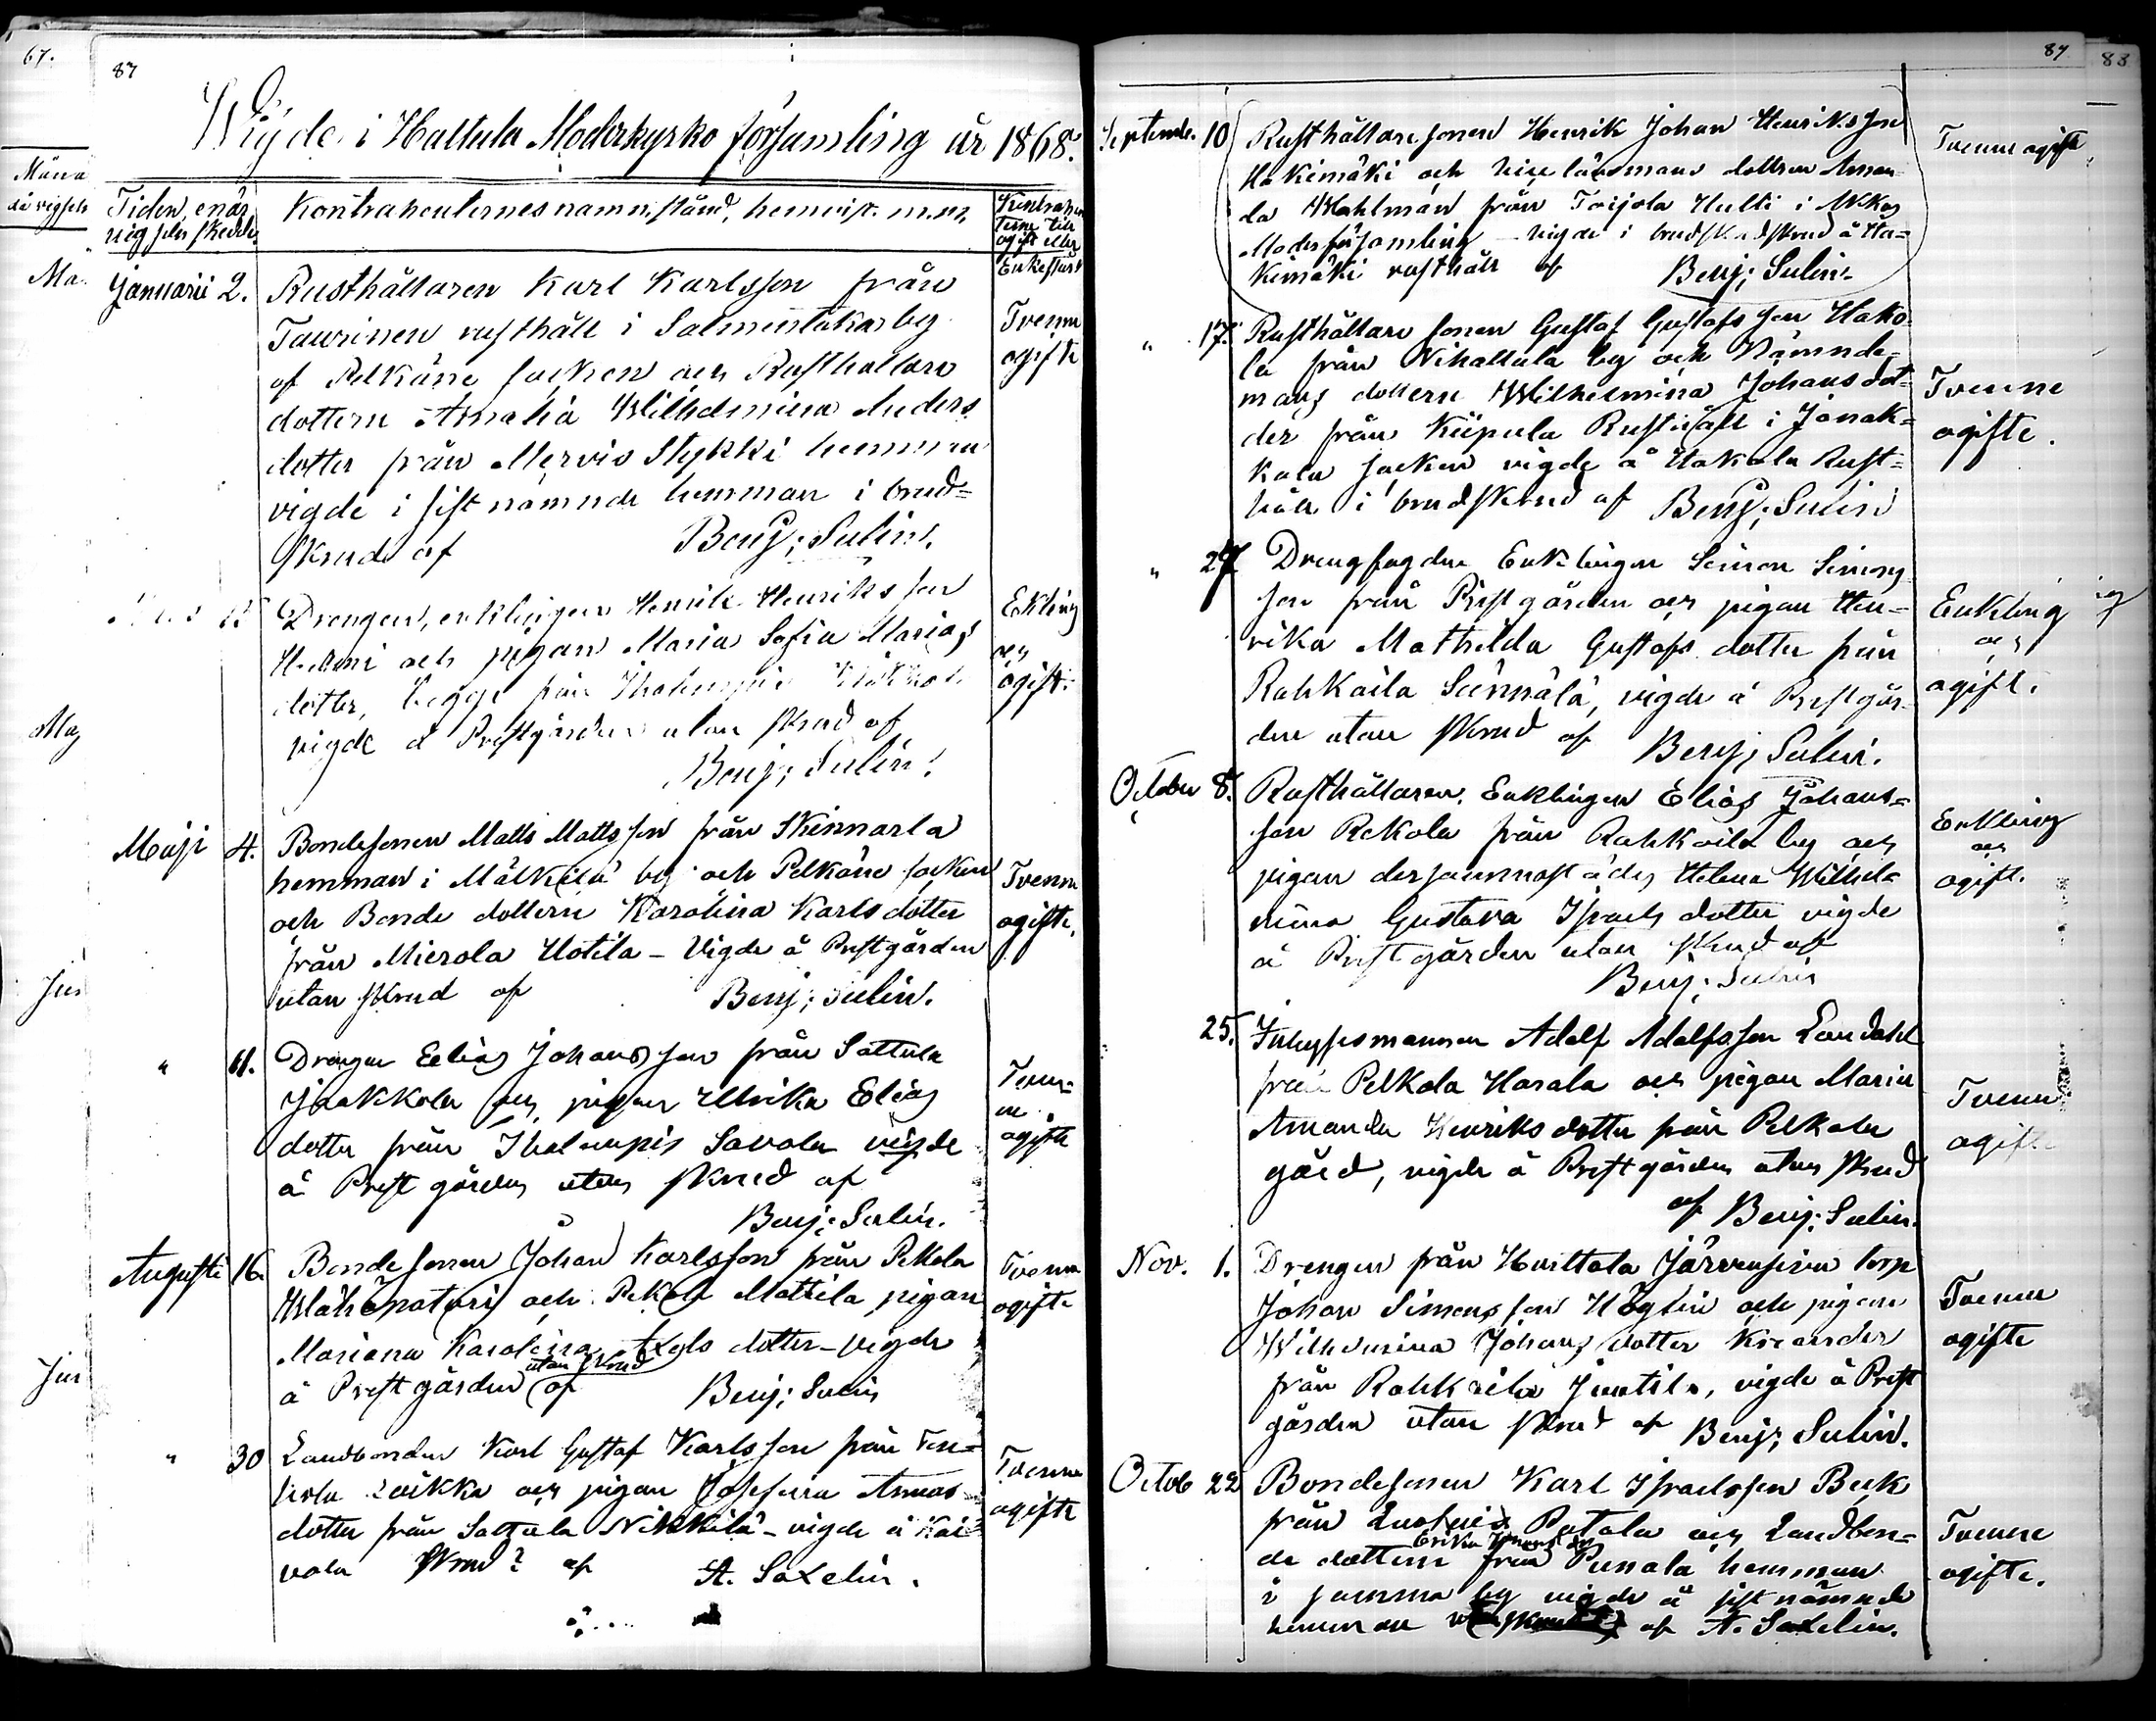 67.
87
Wigde i Hattula Moderkyrko församling år 1868.
Tiden, enär vigseln skedde
Kontrahenternes namn, stånd, hemvist. m.m.
ogift eller
Enkestånd
Januarii 2.
Rusthållaren Karl Karlsson från
Taurinen rusthåll i Salmentaka by
af Pelkäne socken och Rusthållare
dottern Amalia Wilhelmina Anders
dotter från Mervis Stykki hemman
vigde i sistnämnde hemman i brud=
skrud af Benj; Sulin.
Tvenne
ogifte
Drengen, enklingen Henrik Henriksson
och pigan Maria Sofia Marias
dotter, begge från Ihalempis
vigde å Prestgården utan skrud af
Benj; Sulin.
Enkling
och
ogift.
Maji 4.
Bondesonen Matts Mattsson från Skinnarla
hemman i Mälkilä by och Pelkäne socken
och Bonde dottern Karolina Karlsdotter
från Mierola Uotila - Vigde å Prestgården
utan skrud af Benj; Sulin.
Tvenne
ogifte.
" 11.
Drengen Elias Johansson från Sattula
Jaakkola och pigan Ulrika Elias
dotter från Ihalempis Savola vigde
å Prestgården utan skrud af
Benj; Sulin.
Tven=
ne
ogifte
Augusti 16.
Bondesonen Johan Karlsson från Pekola
och Pekola Mattila pigan
Mariana Karolina Axels dotter - vigde
utan skrud
å Prestgården af Benj; Sulin
Tvenne
ogifte
" 30
Landbonden Karl Gustaf Karlsson från Ten=
hola och pigan Josefina Annas
dotter från Sattula Nikkilä - vigde å Kai=
vola skrud? af A. Saxelin.
Tvenne
ogifte
87
88
Septemb. 10
Rusthållaresonen Henrik Johan Henriksson
Hakimäki och vice länsmans dottren Aman=
da Wahlman från Toijola Hulti i Akkas
Moderförsamling - vigde i brudskrud å Ha=
kimäki rusthåll af Benj; Sulin.
Tvenne ogifte
" 17.
Rusthållare sonen Gustaf Gustafsson Hako=
la från Nihattula by och Nämnde=
mans dottern Wilhelmina Johansdot=
der från Kiipula Rusthåll i Janak=
kala socken vigde å Hakola Rust=
håll i brudskrud af Benj; Sulin
Tvenne
ogifte.
" 27
Drengfogden Enklingen Simon Simons
son från Prestgården och pigan Hen=
rika Mathilda Gustafs dotter från
Rahkoila Sännälä, vigde å Prestgår=
den utan skrud af Benj; Sulin.
Enkling
och
ogift.
October 8.
Rusthållaren, Enklingen Elias Johans=
son Rekola från Rahkoila by och
pigan dersammastädes Helena Wilhel=
mina Gustava Israels dotter vigde
å Prestgården utan skrud af
Benj; Sulin
Enkling
och
ogift.
25.
Inhysesmannen Adolf Adolfsson Landahl
från Pelkola Harala och pigan Maria
Amanda Henriksdotter från Pelkola
gård, vigde å Prestgården utan skrud
af Benj; Sulin.
Tvenne
ogifte
Nov. 1.
Drengen från Hurttala Järvensivu torp
Johan Simonsson Höglin och pigan
Wilhelmina Johans dotter Kreander
från Rahkoila Junttila, vigde å Prest
gården utan skrud af Benj; Sulin.
Tvenne
ogifte
Octob 22
Bondesonen Karl Israelsson Beck
från Luolais Patala och Landbon=
Erika
de dottern från Punala hemman
i samma by vigde å sist nämnde
hemman af A. Saxelin.
Tvenne
ogifte.